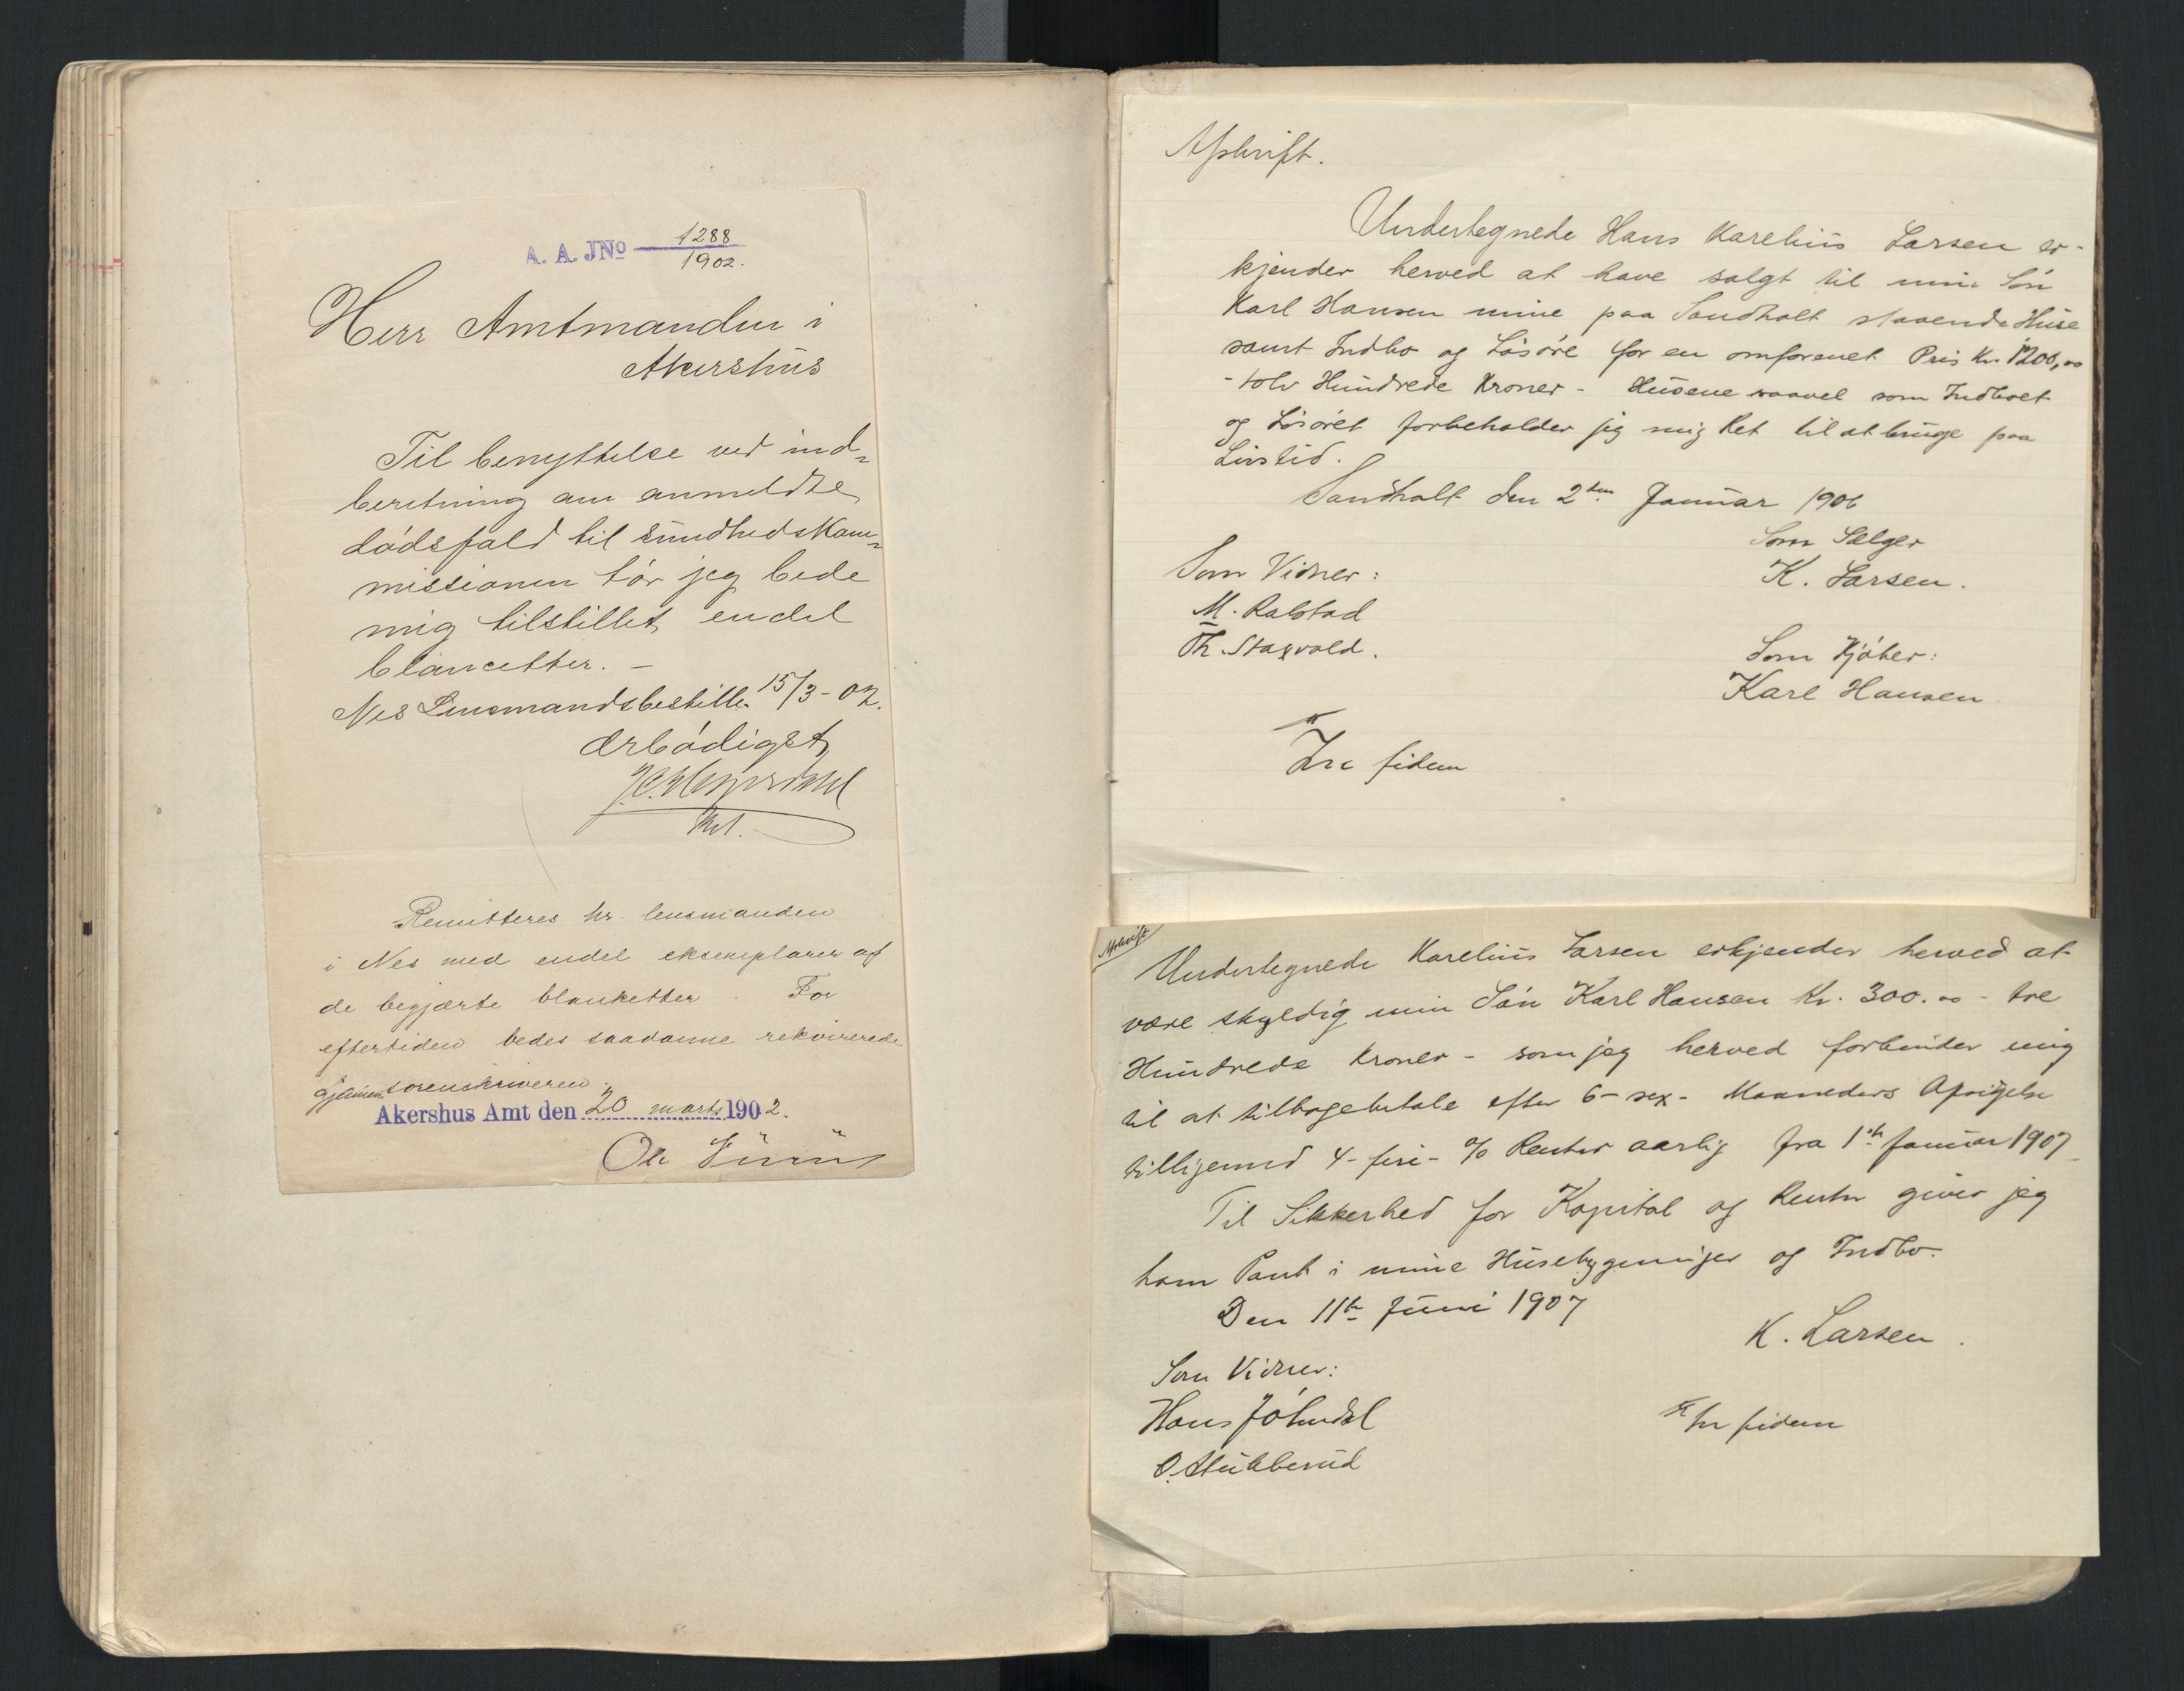 A. A. JNo 1288
1902.
Herr Amtmanden i
Akershus
Til benyttelse ved ind-
beretning om anmeldte
dødsfald til sundhedskom-
missionen tør jeg bede
mig tilstillet endel
blancetter. —
Nes Lensmandsbestill. 15/3-02.
Ærbødigst
Remitteres hr. lensmanden
i Nes med endel eksemplarer af
de begjærte blanketter. For
eftertiden bedes saadanne rekvirerede
gjennem sorenskriveren.
Akershus Amt den 20 marts 1902.
Afskrift.
Undertegnede Hans Karelius Larsen er-
kjender herved at have solgt til min Søn
Karl Hansen mine paa Sandholt staaende Huse
samt Indbo og Løsøre for en omforenet Pris Kr. 1200,00
- tolv Hundrede Kroner - Husene saavel som Indboet
og Løsøret forbeholder jeg mig Ret til at bruge paa
Livstid.
Sandholt den 2den Januar 1906
Som Sælger
Som Vidner:
K. Larsen.
M. Ralstad
Th. Stagvold.
Som Kjøber:
Karl Hansen
fidem
Afskrift
Undertegnede Karelius Larsen erkjender herved at
være skyldig min Søn Karl Hansen Kr. 300.00 - tre
Hundrede Kroner - som jeg herved forbinder mig
til at tilbagebetale efter 6- sex- Maaneders Opsigelse
tilligemed 4- fire- % Renter aarlig fra 1ste Januar 1907
Til Sikkerhed for Kapital og Renter giver jeg
ham Pant i mine Husebygninger og Indbo.
Den 11te Juni 1907
K. Larsen.
Som Vidner:
Hans
fidem
O. Stubberud